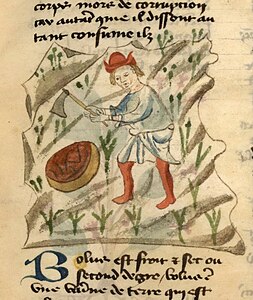 corps mors de corruption
car autant que il dissout au
tant consume ilz
Bolus est froit z sec ou
second degre, bolus
vne vaine de terre qui est